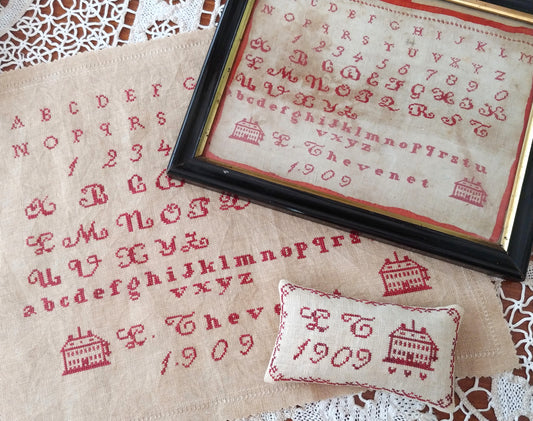 A B C D E F G
N O P Q R S
1 2 3 4
A B C
L M N O P
U V X Y Z
abcdefghijklmnopqrs
vxyz
L. Thevenet
1909
C D E F G H I J K L M
N O P Q R S T U V X Y Z
1 2 3 4 5 6 7 8 9 0
A B C D E F G H
L M N O P Q R S T
U V X Y Z
abcdefghijklmnopqrstu
vxyz
L. Thevenet
1909
L T
1909